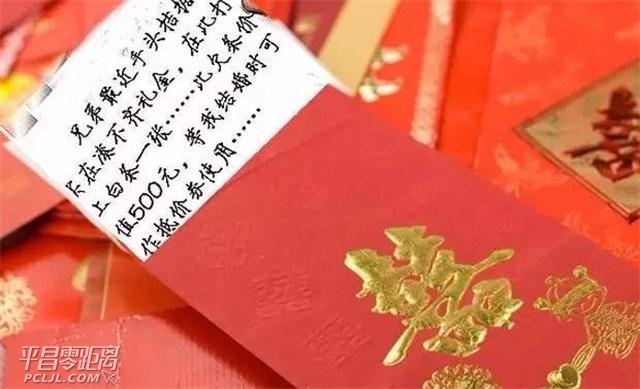 兄弟最近手头拮据
实在凑不齐礼金，在此打
上白条一张……此欠条价
值500元，等我结婚时可
作抵价券使用……
囍
囍
平昌零距离
PCLJL.COM